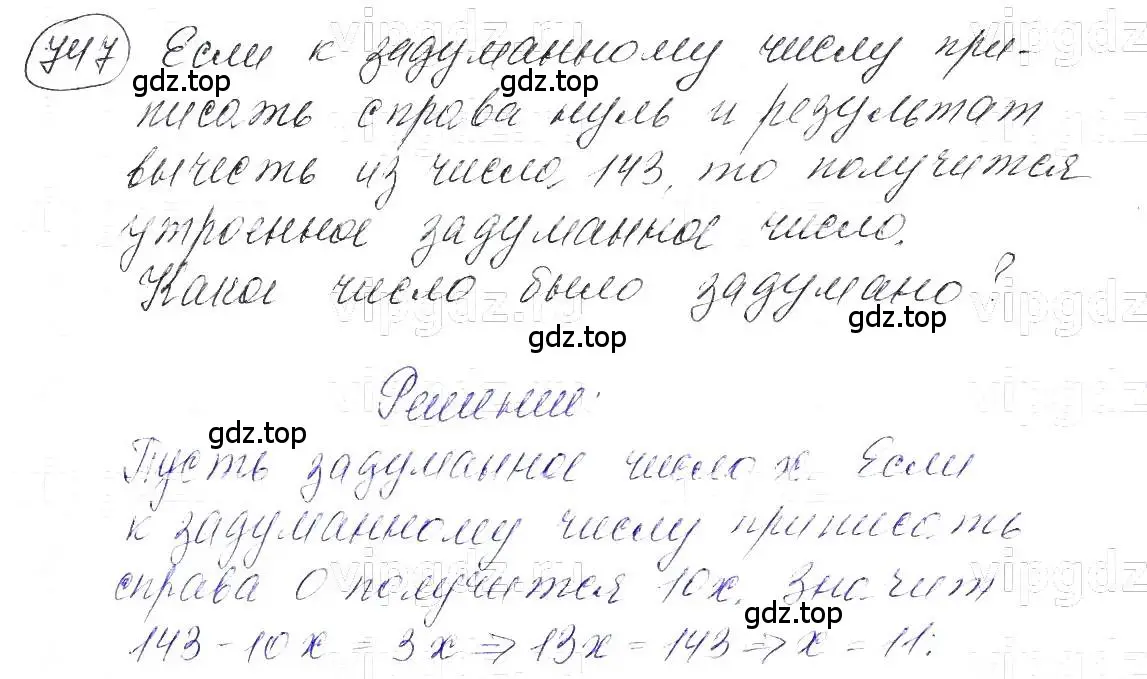 747 Если к задуманному числу при-
gdz.top gdz.top
писать справа нуль и результат
вычесть из числа 143, то получится
утроенное задуманное число.
Какое число было задумано?
gdz.top
gdz.top
Решение:
gdz.top
Пусть задуманное число x. Если
к задуманному числу приписать
справа 0 получится 10x. Значит
gdz.top
143 - 10x = 3x => 13x = 143 => x = 11.